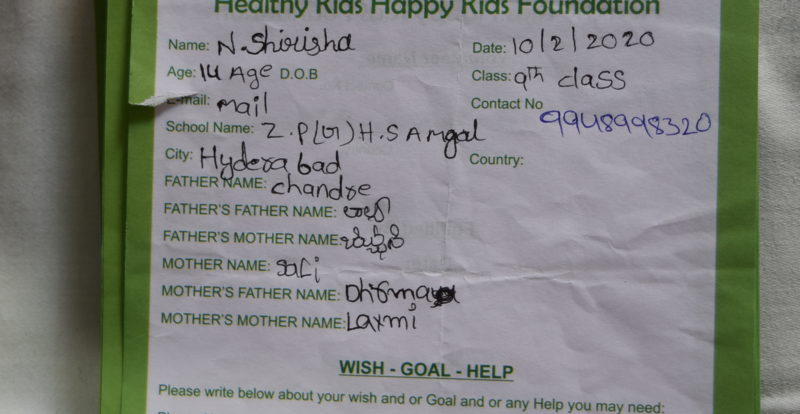 Healthy Kids Happy Kids Foundation
Name: N. Shirisha Date: 10/2/2020
Age: 14 Age D.O.B Class: 9th class
E-mail: mail Contact No 9948998320
School Name: Z.P(G)H.S Amgal
City: Hyderabad Country:
FATHER NAME: chandre
FATHER'S FATHER NAME:
FATHER'S MOTHER NAME:
MOTHER NAME:
MOTHER'S FATHER NAME:
MOTHER'S MOTHER NAME: Laxmi
WISH - GOAL - HELP
Please write below about your wish and or Goal and or any Help you may need: